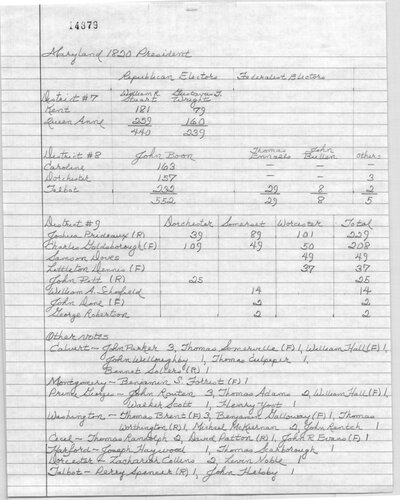 14879
Maryland 1820 President
Republican Electors Federalist Electors
District #7 William R. Stuart Gustavus T. Wright
Kent 181 79
Queen Anne 259 160
440 239
District #8 John Boon Thomas Ennals John Bullen Others
Caroline 163 — —
Dorchester 157 — — 3
Talbot 232 29 8 2
552 29 8 5
District #9 Dorchester Somerset Worcester Total
Joshua Prideaux (R) 39 89 101 229
Charles Goldsborough (F) 109 49 50 208
Samson 49 49
Littleton Dennis (F) 37 37
John Pitt (R) 25 25
William A. Schofield 14 14
John Done (F) 2 2
George Robertson 2 2
Other notes
Calvert — John Parker 3, Thomas Somerville (F) 1, William Hall (F) 1,
John Willoughby 1, Thomas Culpeper 1,
Bennet Sollers (R) 1
Montgomery — Benjamin S. Forrest (F) 1
Prince Georges — John 3, Thomas Adams 2, William Hall (F) 1,
Walker Scott 1, Henry 1
Washington — Thomas Brent (F) 3, Benjamin Galloway (F) 1, Thomas
Worthington (R) 1, Michael McKiernan 2, John 1
Cecil — Thomas Randolph 2, David Patton (R) 1, John R. Evans (F) 1
Harford — Joseph Haywood 1, Thomas Scarborough 1
Dorcester — Zachariah Collins 2, Levin Noble 1
Talbot — Perry Spencer (R) 1, John 1